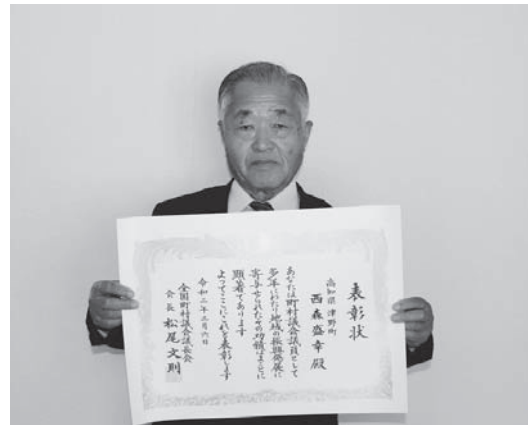 表彰状
高知県 津野町
西森盛幸殿
あなたは町村議会議員として
多年にわたり地域の振興発展に
寄与せられたその功績はまことに
顕著であります
よってここにこれを表彰します
令和二年二月六日
全国町村議会議長会
会長 松尾文則